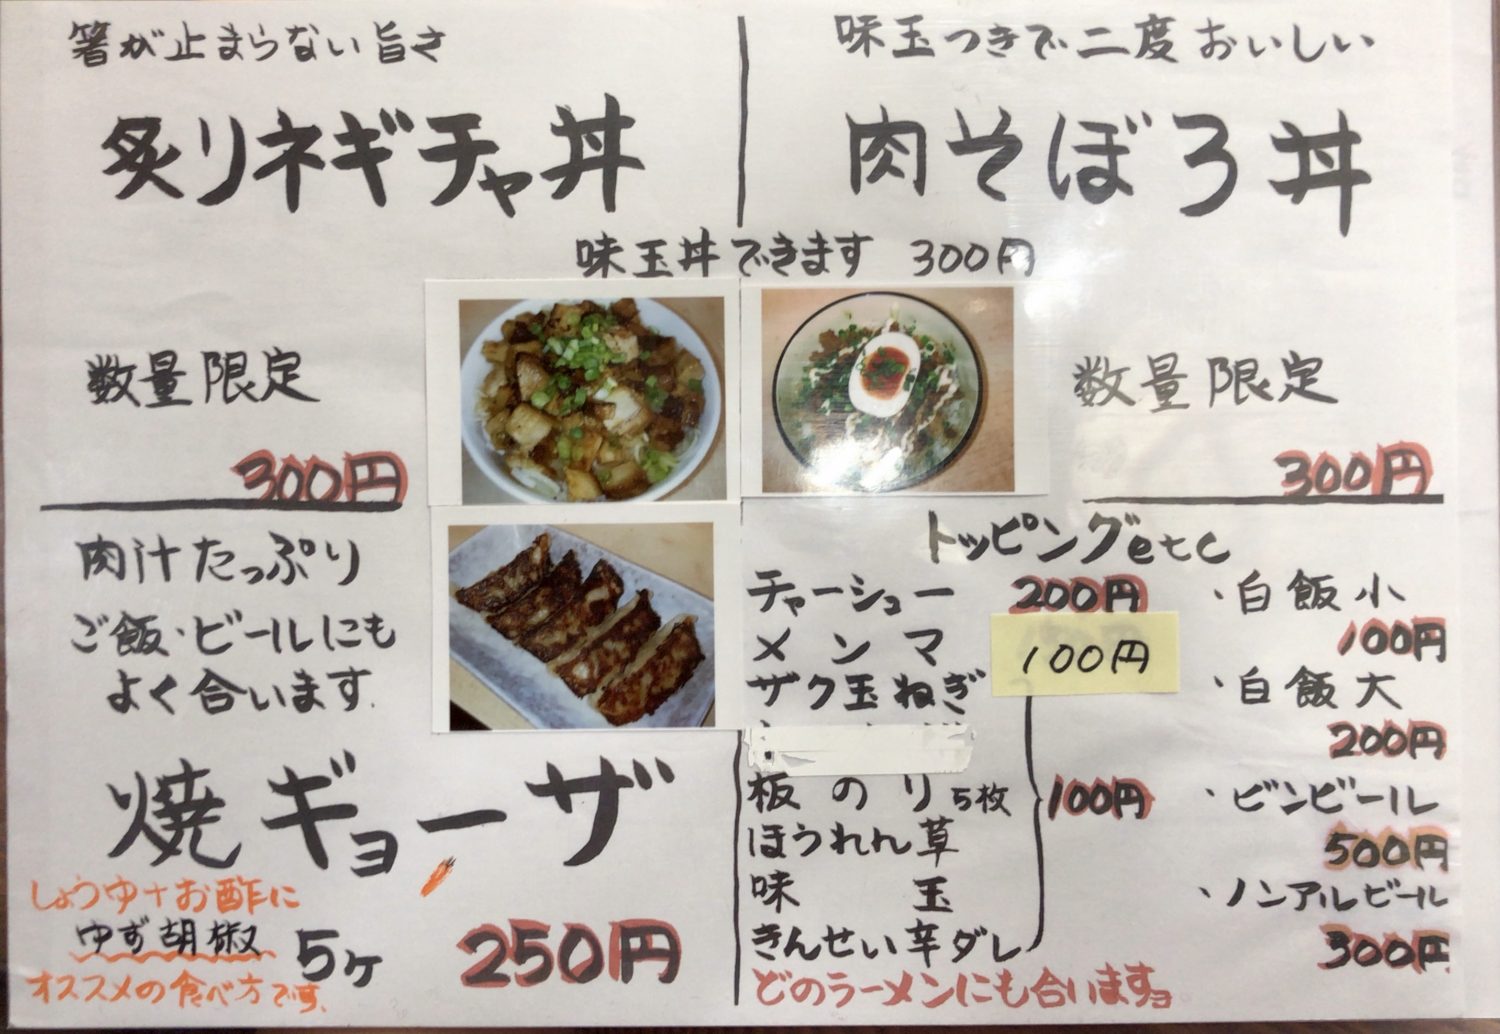 箸が止まらない旨さ
炙りネギチャ丼
味玉つきで二度おいしい
肉そぼろ丼
味玉丼できます 300円
数量限定
300円
数量限定
300円
肉汁たっぷり
ご飯・ビールにも
よく合います.
焼ギョーザ
しょうゆ+お酢に
ゆず胡椒
オススメの食べ方です.
5ヶ 250円
トッピングetc
チャーシュー 200円
メンマ 100円
ザク玉ねぎ
板のり5枚 100円
ほうれん草
味玉
きんせい辛ダレ
どのラーメンにも合いますョ
・白飯小
100円
・白飯大
200円
・ビンビール
500円
・ノンアルビール
300円